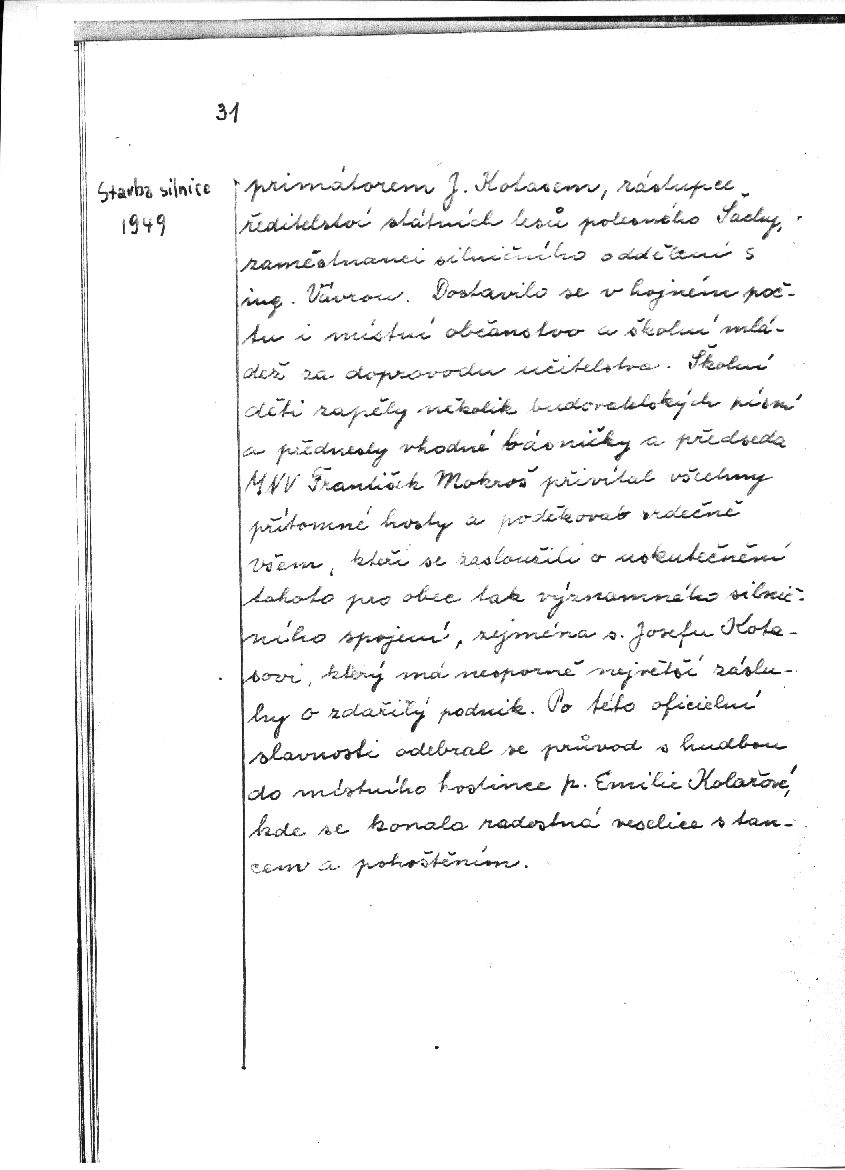 31
Stavba silnice
1949
primátorem J. Kotasem, zástupce
ředitelství státních lesů polesného Šachy,
zaměstnanci silničního oddělení s
ing. Vávrou. Dostavilo se v hojném poč-
tu i místní občanstvo a školní mlá-
dež za doprovodu učitelstva. Školní
děti zapěly několik budovatelských písní
a přednesly vhodné básničky a předseda
MNV František Mokroš přivítal všechny
přítomné hosty a poděkoval srdečně
všem, kteří se zasloužili o uskutečnění
tohoto pro obec tak významného silnič-
ního spojení, zejména s. Josefu Kota-
sovi, který má nesporně největší záslu-
hy o zdařilý podnik. Po této oficielní
slavnosti odebral se průvod s hudbou
do místního hostince p. Emilie Kolářové,
kde se konala radostná veselice s tan-
cem a pohoštěním.